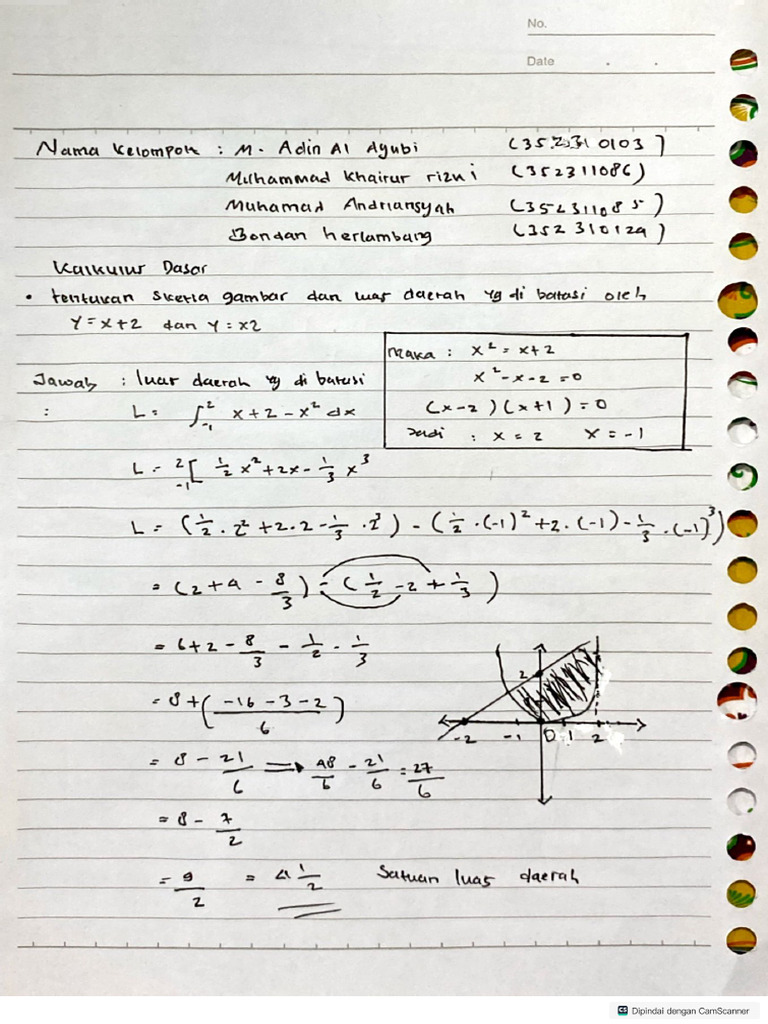 No.
Date . .
Nama Kelompok : M. Adin Al Ayubi (3523310103)
Muhammad Khairur rizqi (352311086)
Muhamad Andriansyah (352311085)
Bondan herlambang (352310129)
Kalkulus Dasar
• tentukan sketsa gambar dan luas daerah yg di batasi oleh
Y = x+2 dan Y = x2
maka : x² = x+2
x² - x - 2 = 0
(x-2)(x+1) = 0
Jadi : x = 2 x = -1
Jawab : luas daerah yg di batasi
: L = ∫₋₁² x+2 - x² dx
L = ²₋₁[ 1/2 x² + 2x - 1/3 x³
L = (1/2 . 2² + 2.2 - 1/3 . 2³) - (1/2 . (-1)² + 2 . (-1) - 1/3 . (-1)³)
= (2+4 - 8/3) - (1/2 - 2 + 1/3)
= 6+2 - 8/3 - 1/2 - 1/3
= 8 + (-16 - 3 - 2 / 6)
= 8 - 21/6 ⟹ 48/6 - 21/6 = 27/6
= 8 - 7/2
= 9/2 = 4 1/2 Satuan luas daerah
2
-2 -1 0 1 2
CS Dipindai dengan CamScanner